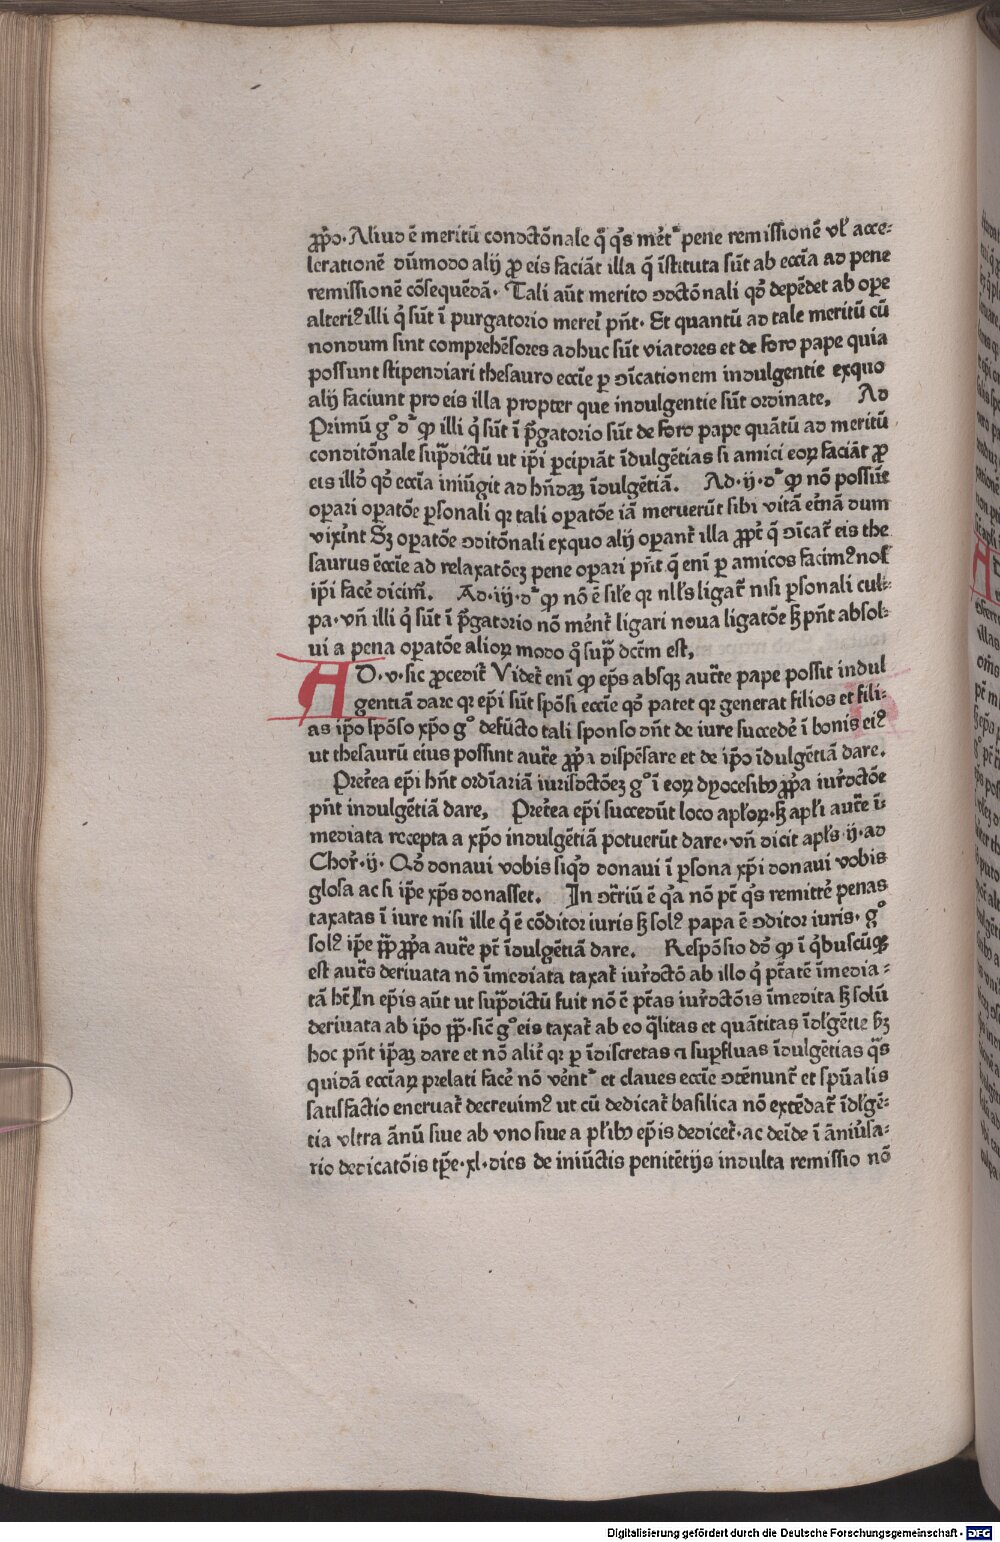 ꝓpͦo. Aliud ē meritū condictōnale qͥ qͥs meret᷑ pene remissionē vl̓ acce⸗
lerationē dūmodo alij ꝓ eis faciāt illa q̄ īstituta sūt ab eccīa ad pene
remissionē cōsequēdā. Tali aūt merito ꝯdictōnali qd̓ depēdet ab ope
alteriꝰ illi qͥ sūt ī purgatorio mereri pn̄t. Et quantū ad tale meritū cū
nondum sint comprehēsores adhuc sūt viatores et de foro pape quia
possunt stipendiari thesauro eccīe p ꝯīcationem indulgentie exquo
alij faciunt pro eis illa propter que indulgentie sūt ordinate. Ad
Primū gͦ dͫ ꝙ illi qͥ sūt ī p̄gatorio sūt de foro pape quātū ad meritū
conditōnale sup̄dictū ut ip̄i ꝑcipiāt īdulgētias si amici eoꝝ faciāt ꝓ
eis illd̓ qd̓ eccīa iniūgit ad hn̄daꝫ īdulgētiā. Ad.ij.dͫ ꝙ nō possūt
opari opatōe ꝑsonali qꝛ tali opatōe iā meruerūt sibi vitā et̓nā dum
vixer̄t Sꝫ opatōe ꝯditōnali exquo alij opant᷑ illa ꝓpt̓ q̄ ꝯīcat᷑ eis the
saurus eccīe ad relaxatōeꝫ pene opari pn̄t q̄ enī p amicos facimꝰ nos
ip̄i face᷑ dicim᷑. Ad.iij.dͫ ꝙ nō ē sil̓e qꝛ nll̓s ligat᷑ nisi ꝑsonali cul⸗
pa. vn̄ illi qͥ sūt ī p̄gatorio nō mer̄et᷑ ligari noua ligatōe sꝫ pn̄t absol⸗
ui a pena opatōe alioꝝ modo qͦ sup̄ dc̄tm est.
AD.v.sic ꝓcedit᷑ Videt᷑ enī ꝙ ep̄s absqꝫ auct̄e pape possit indul
gentiā dare qꝛ ep̄i sūt spōsi eccīe qd̓ patet qꝛ generat filios et fili⸗
as ip̄o spōso xp̄o gͦ defūcto tali sponso dn̄t de iure succede᷑ ī bonis eiꝰ
ut thesaurū eius possunt auct̄e ꝓp̄a dispēsare et de ip̄o īdulgētiā dare.
Pret̓ea ep̄i hn̄t ordīariā iurisdictōeꝫ gͦ ī eoꝝ dyocesibꝰ ꝓp̄a iur̓dictōe
pn̄t indulgētiā dare. Pret̓ea ep̄i succedūt loco apl̓oꝝ. sꝫ apl̓i auct̄e ī⸗
mediata recepta a xp̄o indulgētiā potuerūt dare. vn̄ dicit apl̓s.ij.ad
Chor̓.ij. Qd̓ donaui vobis siqͥd donaui ī ꝑsona xp̄i donaui vobis
glosa ac si ip̄e xp̄s donasset. In ꝯt̄riū ē qꝛ nō pt̄ qͥs remitt̓e penas
taxatas ī iure nisi ille qͥ ē cōditor iuris sꝫ solꝰ papa ē ꝯditor iuris. gͦ
solꝰ ip̄e pp̄ ꝓp̄a auct̄e pt̄ īdulgētiā dare. Respōsio dd̓ ꝙ ī qͥbuscūqꝫ
est auct̄s deriuata nō īmediata taxat᷑ iur̓dictō ab illo qͥ pt̄atē īmedia⸗
tā hꝫ In ep̄is aūt ut sup̄dictū fuit nō ē pt̄as iur̓dictōis īmedita sꝫ solū
deriuata ab ip̄o pp̄. sic̄ gͦ eis taxat᷑ ab eo qͣlitas et quātitas īdl̓gētie sꝫ
hoc pn̄t ip̄aꝫ dare et nō alit̓ qꝛ p īdiscretas ⁊ supfluas īdulgētias qͣs
quidā eccīaꝝ prelati face᷑ nō verent᷑ et claues eccīe ꝯtēnunt᷑ et spūalis
satisfactio eneruat᷑ decreuimꝰ ut cū dedicat᷑ basilica nō extēdat᷑ īdl̓gē⸗
tia vltra ānū siue ab vno siue a pl̓ibꝰ ep̄is dedicet᷑. ac deīde ī āniūsa⸗
rio dedicatōis tp̄e.xl.dies de iniūctis penitētijs indulta remissio nō
Digitalisierung gefördert durch die Deutsche Forschungsgemeinschaft - DFG